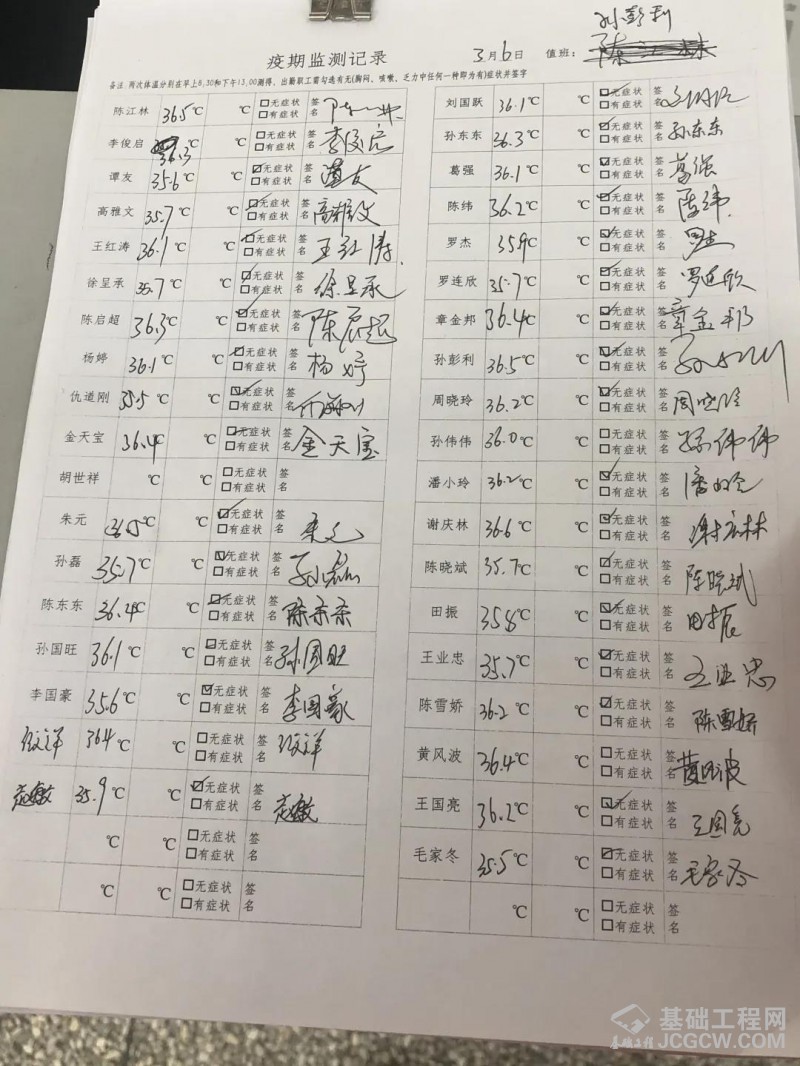 孙彭利
疫期监测记录 3月6日 值班:
备注:两次体温分别在早上8,30和下午13,00测得、出勤职工需勾选有无(胸闷、咳嗽、乏力中任何一种即为有)症状并签字
陈江林 36.5℃ ℃ 无症状 有症状 签名
李俊启 36.3℃ ℃ 无症状 有症状 签名 李俊启
谭友 35.6℃ ℃ 无症状 有症状 签名 谭友
高雅文 35.7℃ ℃ 无症状 有症状 签名 高雅文
王红涛 36.1℃ ℃ 无症状 有症状 签名 王红涛
徐呈承 35.7℃ ℃ 无症状 有症状 签名 徐呈承
陈启超 36.3℃ ℃ 无症状 有症状 签名 陈启超
杨婷 36.1℃ ℃ 无症状 有症状 签名 杨婷
仇道刚 35.5℃ ℃ 无症状 有症状 签名
金天宝 36.4℃ ℃ 无症状 有症状 签名 金天宝
胡世祥 ℃ ℃ 无症状 有症状 签名
朱元 36.5℃ ℃ 无症状 有症状 签名 朱元
孙磊 35.7℃ ℃ 无症状 有症状 签名 孙磊
陈东东 36.4℃ ℃ 无症状 有症状 签名 陈东东
孙国旺 36.1℃ ℃ 无症状 有症状 签名 孙国旺
李国豪 35.6℃ ℃ 无症状 有症状 签名 李国豪
36.4℃ ℃ 无症状 有症状 签名
35.9℃ ℃ 无症状 有症状 签名
℃ ℃ 无症状 有症状 签名
℃ ℃ 无症状 有症状 签名
刘国跃 36.1℃ ℃ 无症状 有症状 签名
孙东东 36.3℃ ℃ 无症状 有症状 签名 孙东东
葛强 36.1℃ ℃ 无症状 有症状 签名 葛强
陈纬 36.2℃ ℃ 无症状 有症状 签名 陈纬
罗杰 35.9℃ ℃ 无症状 有症状 签名 罗杰
罗连欣 35.7℃ ℃ 无症状 有症状 签名 罗连欣
章金邦 36.4℃ ℃ 无症状 有症状 签名 章金邦
孙彭利 36.5℃ ℃ 无症状 有症状 签名
周晓玲 36.2℃ ℃ 无症状 有症状 签名 周晓玲
孙伟伟 36.0℃ ℃ 无症状 有症状 签名 孙伟伟
潘小玲 36.2℃ ℃ 无症状 有症状 签名 潘小玲
谢庆林 36.6℃ ℃ 无症状 有症状 签名 谢庆林
陈晓斌 35.7℃ ℃ 无症状 有症状 签名 陈晓斌
田振 35.8℃ ℃ 无症状 有症状 签名 田振
王业忠 35.7℃ ℃ 无症状 有症状 签名 王业忠
陈雪娇 36.2℃ ℃ 无症状 有症状 签名 陈雪娇
黄风波 36.4℃ ℃ 无症状 有症状 签名 黄风波
王国亮 36.2℃ ℃ 无症状 有症状 签名 王国亮
毛家冬 35.5℃ ℃ 无症状 有症状 签名 毛家冬
℃ ℃ 无症状 有症状 签名
基础工程 基础工程网
JCGCW.COM